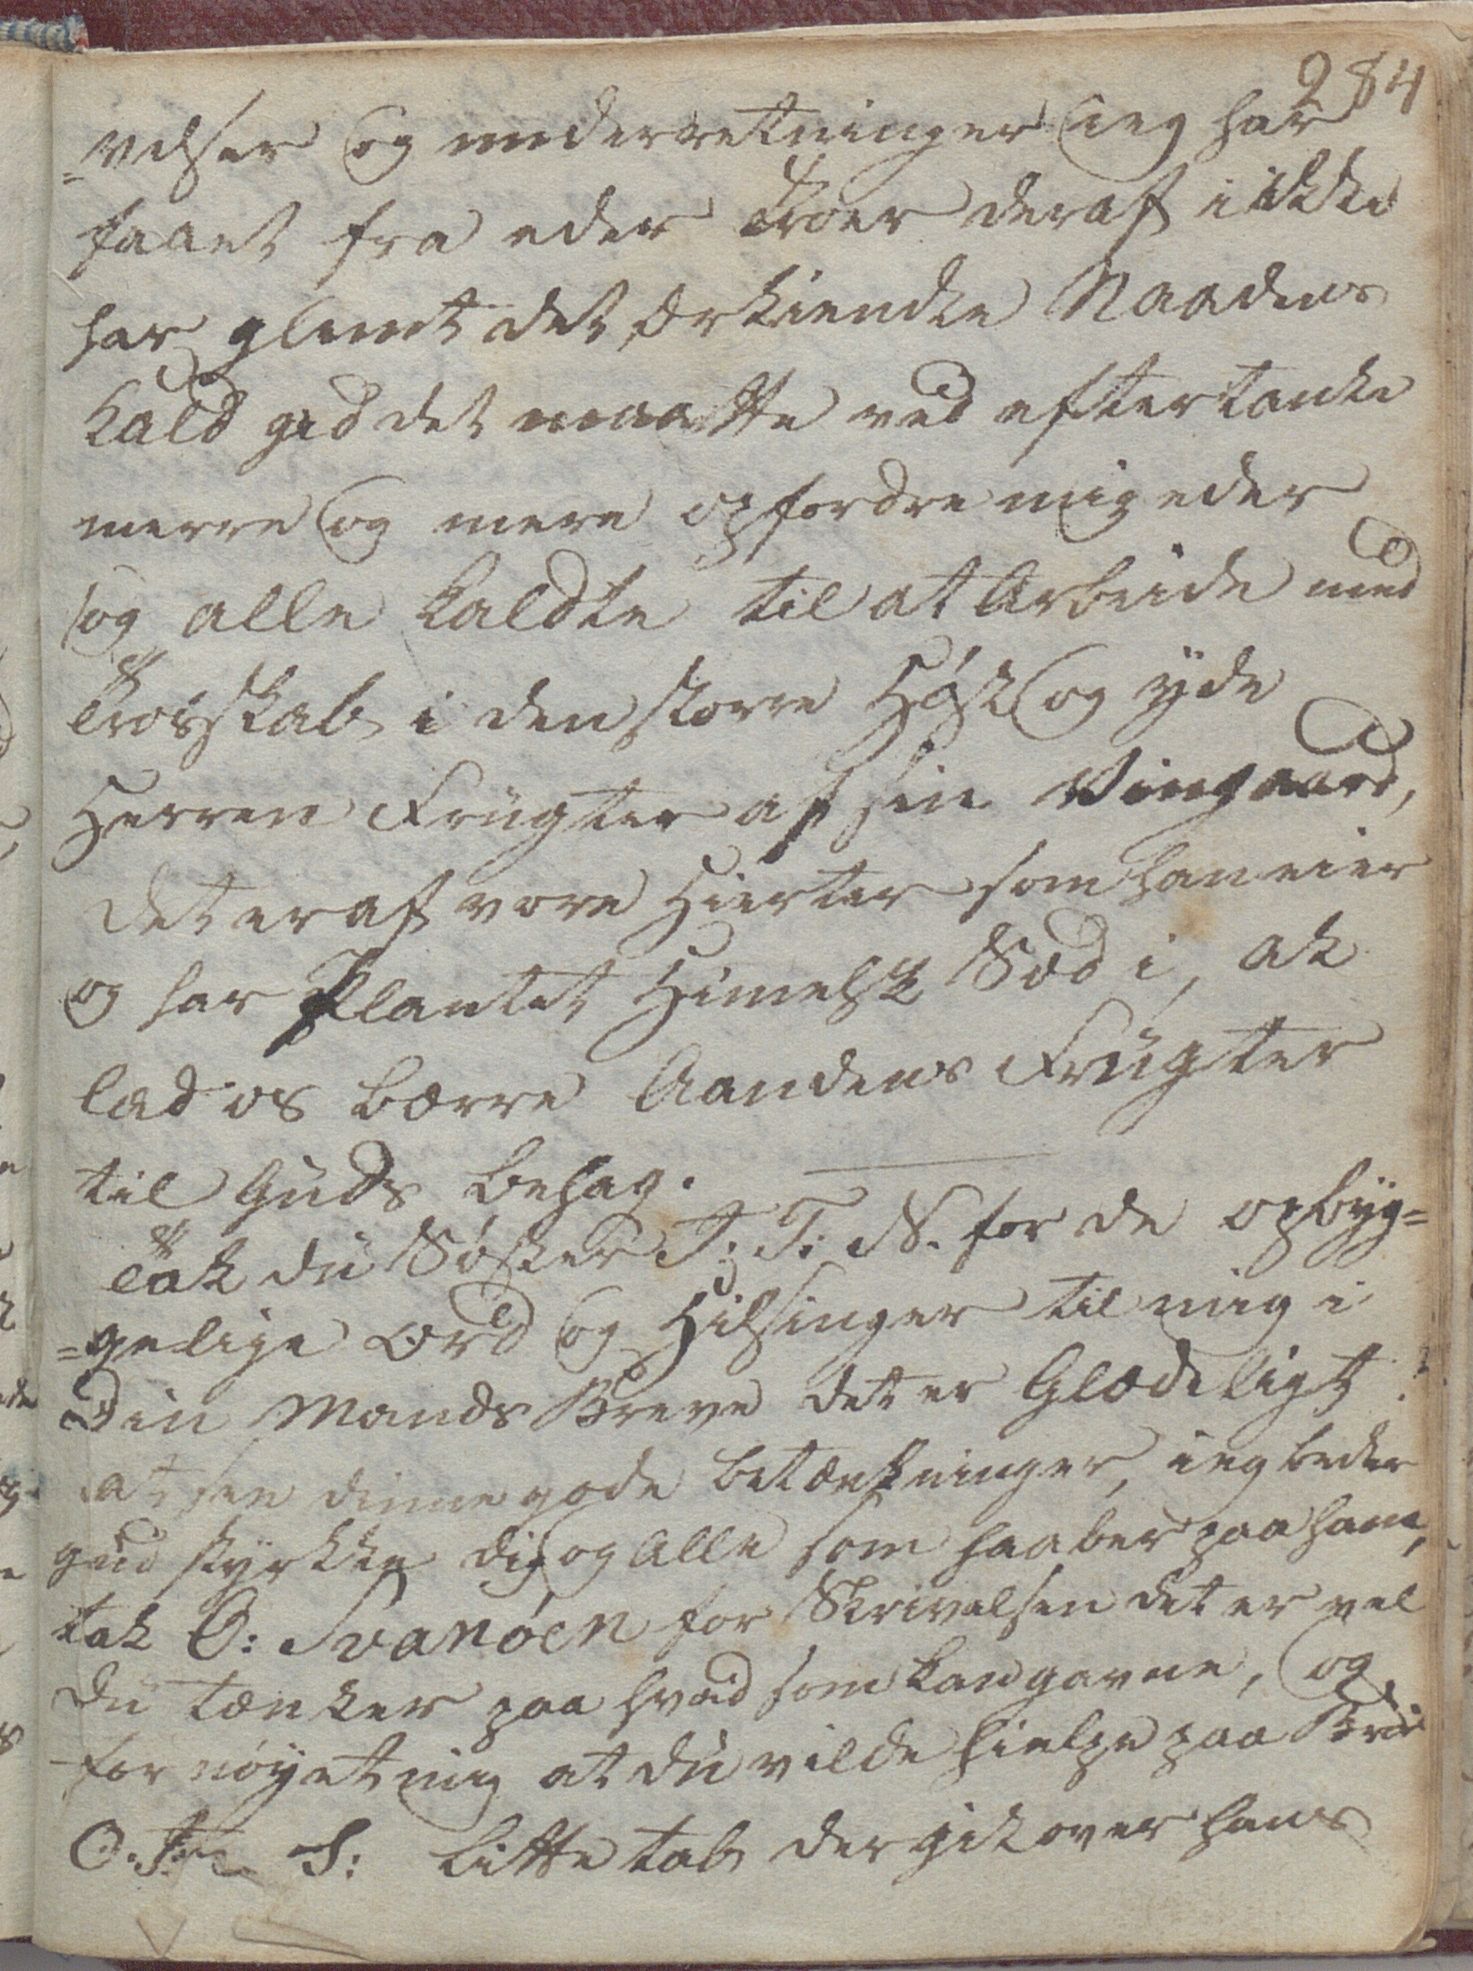 284
=velser og underretninger ieg har
faaet fra eder Troer deraf i ikke
har glemt det erkiendte Naadens
Kald gid det maatte ved eftertanke
merre og mere opfordre mig eder
og alle Kaldte til at Arbeide med
Troeskab i den storre Høst og yde
Herren Frugter af sin Vingaard,
det er af vore Hierter som han eier
og har Plantet Himelsk Sæd i, ak
lad os bærre Aandens Frugter
til Guds behag.
Tak du Søster I: T: N. for de opbyg=
=gelige ord og Hilsinger til mig i
Din Mands Breve det er Glædeligt
at see dinne gode betænkninger, ieg beder
gud styrkke dig og Alle som haaber paa ham,
tak O: Svanøen for Skrivelsen det er vel
du tænker paa hvad som kan gavne, og
fornøyet mig at du vilde hielpe paa Bror
O. S: litte tab der gik over hans